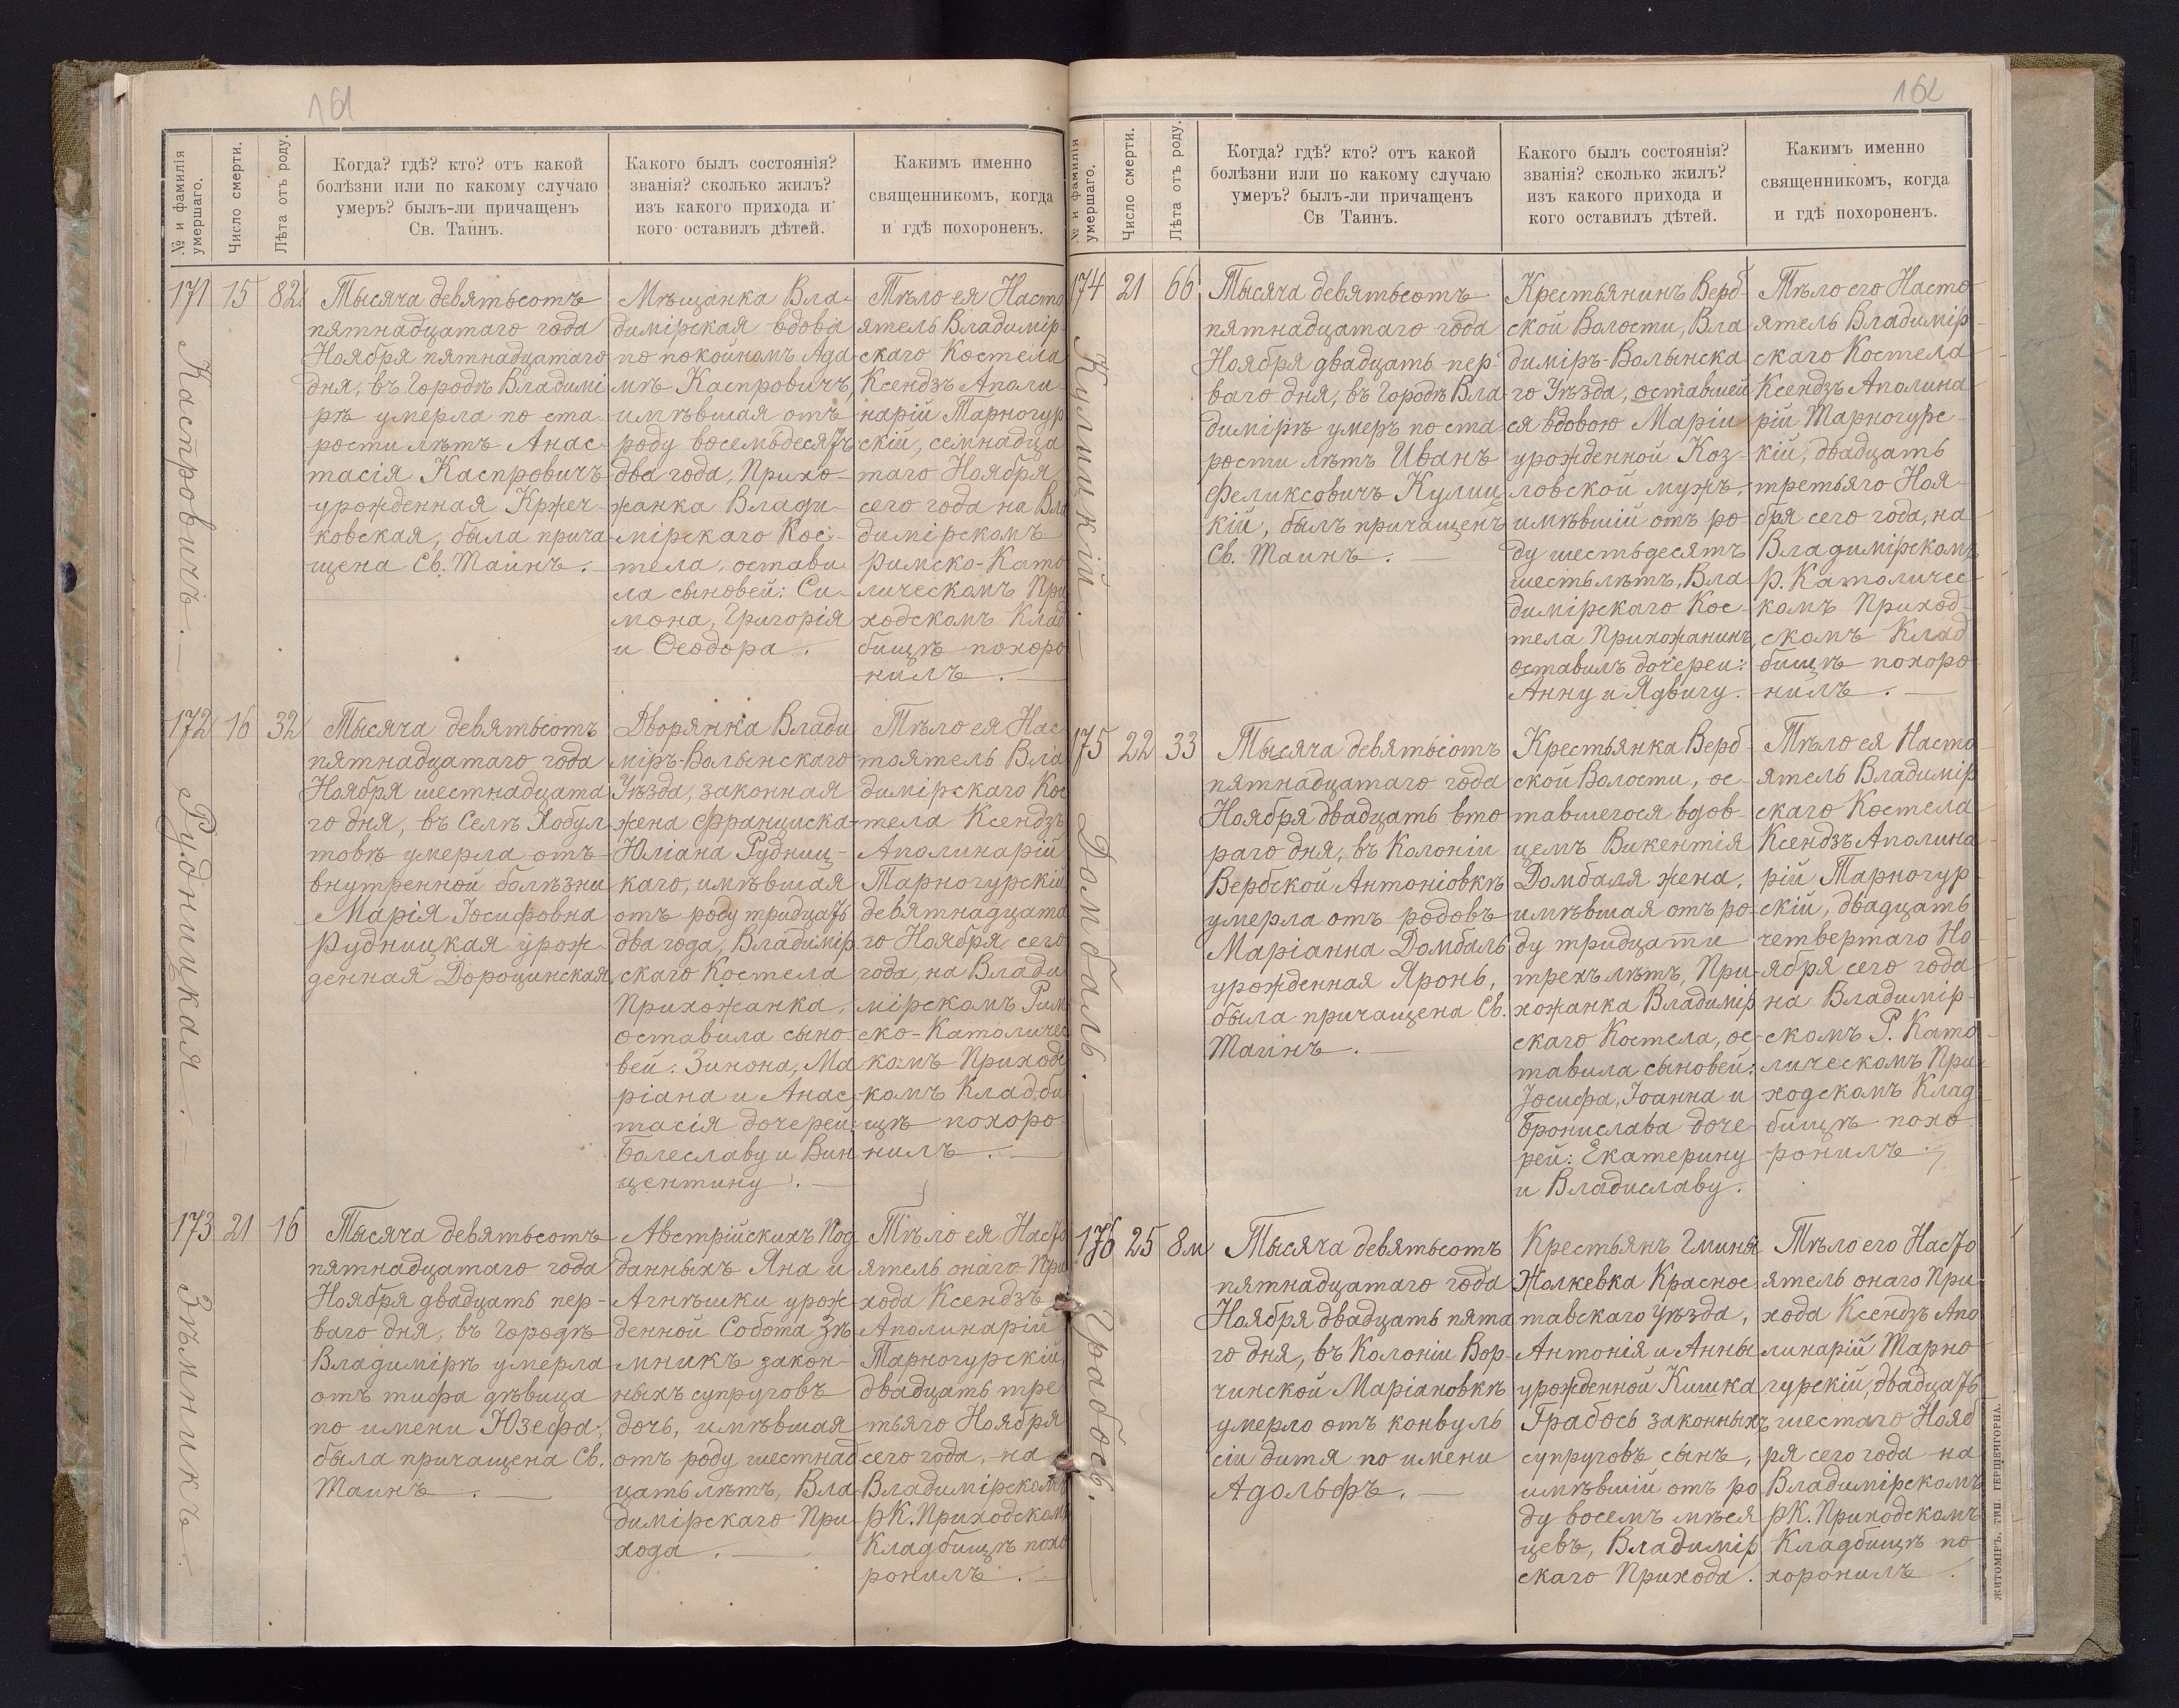 161
№ и фамилія умершаго.
Число смерти.
Лѣта отъ роду.
Когда? гдѣ? кто? отъ какой
болѣзни или по какому случаю
умеръ? былъ-ли причащенъ
Св. Таинъ.
Какого былъ состоянія?
званія? сколько жилъ?
изъ какого прихода и
кого оставилъ дѣтей.
Какимъ именно
священникомъ, когда
и гдѣ похороненъ.
171
Каспровичъ.
15
82
Тысяча девятьсотъ
пятнадцатаго года
Ноября пятнадцатаго
дня, въ Городѣ Владимі
рѣ умерла по ста-
рости лѣтъ Анас-
тасія Каспровичъ
урожденная Кржеч-
ковская, была прича
щена Св. Таинъ.
Мѣщанка Вла-
димірская вдова
по покойномъ Ада
мѣ Каспровичъ,
имѣвшая отъ
роду восемьдесятъ
два года, Прихо-
жанка Влади-
мірскаго Кос-
тела, остави
ла сыновей: Си-
мона, Григорія
и Ѳеодора.
Тѣло ея Насто
ятель Владимір-
скаго Костела
Ксендзъ Аполи-
нарій Тарногур
скій, семнадца
таго Ноября
сего года на Вла
димірскомъ
Римско-Като
лическомъ При
ходскомъ Клад
бищѣ похоро
нилъ.
172
Рудницкая.
16
32
Тысяча девятьсотъ
пятнадцатаго года
Ноября шестнадцата
го дня, въ Селѣ Хобул
товѣ умерла отъ
внутренной болѣзни
Марія Іосифовна
Рудницкая урож-
денная Дорощинская,
Дворянка Влади
міръ-Волынскаго
Уѣзда, законная
жена Франциска-
Юліана Рудниц-
каго, имѣвшая
отъ роду тридцать
два года, Владимір
скаго Костела
Прихожанка,
оставила сыно
вей: Зинона, Ма
ріана и Анас-
тасія дочерей:
Болеславу и Вин
центину.
Тѣло ея Нас
тоятель Вла
димірскаго Кос
тела Ксендзъ
Аполинарій
Тарногурскій
девятнадцата
го Ноября сего
года, на Влади
мірскомъ Рим
ско-Католичес
комъ Приходс
комъ Кладби
щѣ похоро-
нилъ.
173
Зѣмникъ.
21
16
Тысяча девятьсотъ
пятнадцатаго года
Ноября двадцать пер-
ваго дня, въ Городѣ
Владимірѣ умерла
отъ тифа дѣвица
по имени Юзефа,
была причащена Св.
Таинъ.
Австрійскихъ Под
данныхъ Яна и
Агнѣшки урож-
денной Собота Зѣ
мникъ закон-
ныхъ супруговъ
дочь, имѣвшая
отъ роду шестнад
цать лѣтъ, Вла
димірскаго При
хода.
Тѣло ея Насто
ятель онаго При
хода Ксендзъ
Аполинарій
Тарногурскій,
двадцать тре
тьяго Ноября
сего года, на
Владимірскомъ
рК. Приходскомъ
Кладбищѣ похо
ронилъ.
162
№ и фамилія умершаго.
Число смерти.
Лѣта отъ роду.
Когда? гдѣ? кто? отъ какой
болѣзни или по какому случаю
умеръ? былъ-ли причащенъ
Св Таинъ.
Какого былъ состоянія?
званія? сколько жилъ?
изъ какого прихода и
кого оставилъ дѣтей.
Какимъ именно
священникомъ, когда
и гдѣ похороненъ.
174
Кулицкій.
21
66
Тысяча девятьсотъ
пятнадцатаго года
Ноября двадцать пер-
ваго дня, въ Городѣ Вла
димірѣ умеръ по ста
рости лѣтъ Иванъ
Феликсовичъ Кулиц
кій, былъ причащенъ
Св. Таинъ.
Крестьянинъ Верб-
ской Волости, Вла
диміръ-Волынска
го Уѣзда, оставшей
ся вдовою Маріи
урожденной Коз-
ловской мужъ,
имѣвшій отъ ро-
ду шестьдесятъ
шесть лѣтъ, Вла-
димірскаго Кос-
тела Прихожанинъ,
оставилъ дочерей:
Анну и Ядвигу.
Тѣло его Насто-
ятель Владимір-
скаго Костела
Ксендзъ Аполина-
рій Тарногурс-
кій, двадцать
третьяго Ноя-
бря сего года, на
Владимірскомъ
р. Католичес-
комъ Приход-
скомъ Клад
бищѣ похоро-
нилъ.
175
Домбаль.
22
33
Тысяча девятьсотъ
пятнадцатаго года
Ноября двадцать вто
раго дня, въ Колоніи
Вербской Антоніовкѣ
умерла отъ родовъ
Маріанна Домбаль
урожденная Яронь,
была причащена Св.
Таинъ.
Крестьянка Верб-
ской Волости, ос-
тавшегося вдов-
цемъ Викентія
Домбаля жена,
имѣвшая отъ ро-
ду тридцати
трехъ лѣтъ, При-
хожанка Владимір
скаго Костела, ос-
тавила сыновей:
Іосифа, Іоанна и
Бронислава доче-
рей: Екатерину
и Владиславу.
Тѣло ея Насто-
ятель Владимір
скаго Костела
Ксендзъ Аполина-
рій Тарногур-
скій, двадцать
четвертаго Но-
ября сего года
на Владимір-
скомъ Р. Като-
лическомъ При-
ходскомъ Клад-
бищѣ похо-
ронилъ.
176
Грабось.
25
8м
Тысяча девятьсотъ
пятнадцатаго года
Ноября двадцать пята
го дня, въ Колоніи Вор-
чинской Маріановкѣ
умерло отъ конвуль
сіи дитя по имени
Адольфъ.
Крестьянъ Гмины
Жолкевка Красное
тавскаго Уѣзда,
Антонія и Анны
урожденной Кишка
Грабось законныхъ
супруговъ сынъ,
имѣвшій отъ ро
ду восемъ мѣся
цевъ, Владимір
скаго Прихода.
Тѣло его Насто
ятель онаго При
хода Ксендзъ Апо
линарій Тарно
гурскій, двадцать
шестаго Нояб
ря сего года на
Владимірскомъ
рК. Приходскомъ
Кладбищѣ по
хоронилъ.
ЖИТОМІРЪ. ТИП. ГЕРШЕНГОРНА.